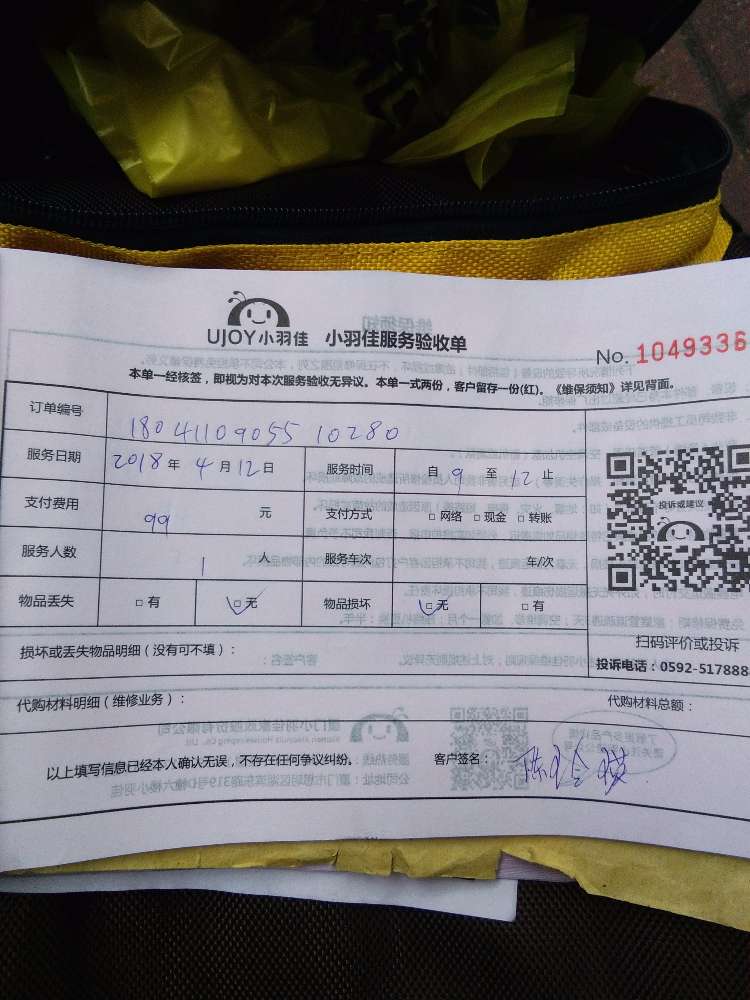 UJOY小羽佳 小羽佳服务验收单
No. 1049336
本单一经核签，即视为对本次服务验收无异议。本单一式两份，客户留存一份(红)。《维保须知》详见背面。
订单编号 1804110905510280
服务日期 2018 年 4 月 12 日 服务时间 自 9 至 12 止
支付费用 99 元 支付方式 □ 网络 □ 现金 □ 转账
服务人数 1 人 服务车次 车/次
物品丢失 □ 有 □ 无 物品损坏 □ 无 □ 有
投诉或建议
扫码评价或投诉
投诉电话：0592-517888
损坏或丢失物品明细（没有可不填）：
代购材料明细（维修业务）： 代购材料总额：
以上填写信息已经本人确认无误，不存在任何争议纠纷。 客户签名：